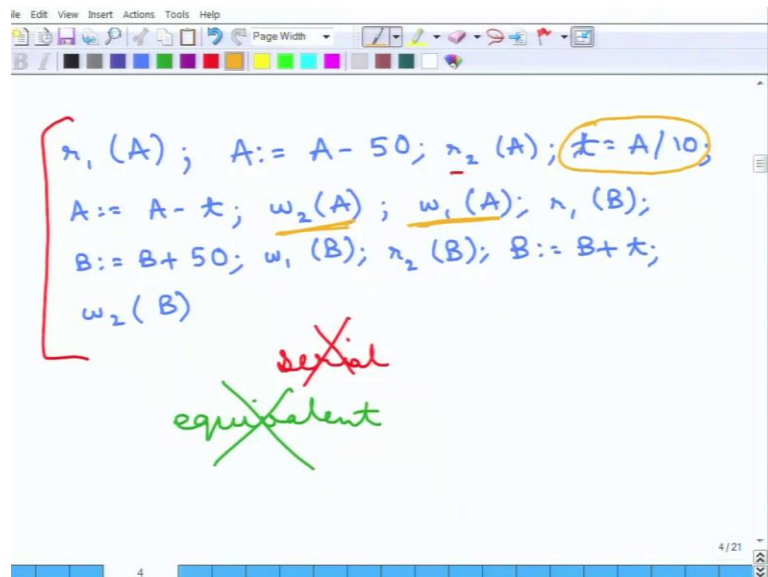 ile Edit View Insert Actions Tools Help
Page Width
B I
r₁ (A); A:= A - 50; r₂ (A); t = A/10;
A:= A - t; w₂(A); w₁(A); r₁(B);
B:= B + 50; w₁ (B); r₂ (B); B:= B + t;
w₂ (B)
serial
equivalent
4/21
4